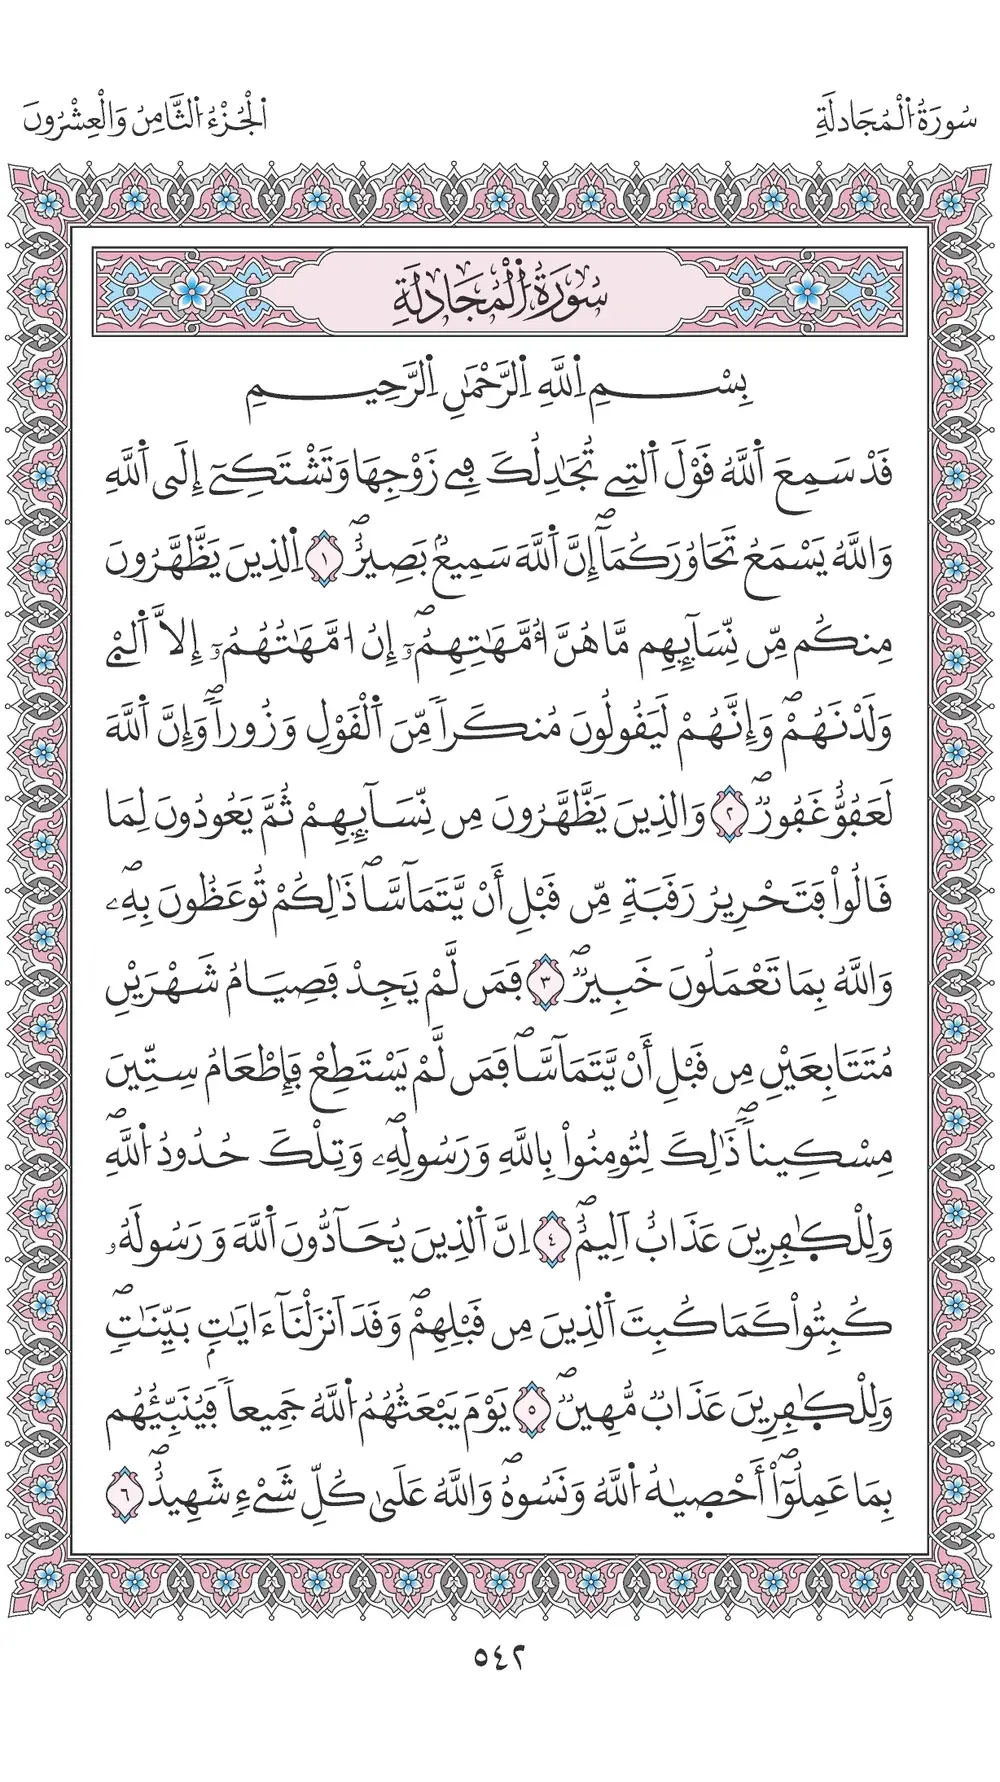 سُورَةُ الْمُجَادلَةِ
الْجُزْءُ الثَّامِنُ وَالْعِشْرُونَ
سُورَةُ الْمُجَادلَةِ
بِسْمِ اِللَّهِ اِلرَّحْمَٰنِ اِلرَّحِيمِ
قَدْ سَمِعَ اَللَّهُ قَوْلَ اَلتِے تُجَٰدِلُكَ فِے زَوْجِهَا وَتَشْتَكِےٓ إِلَى اَللَّهِ
وَاللَّهُ يَسْمَعُ تَحَاوُرَكُمَآۖ إِنَّ اَللَّهَ سَمِيعُۢ بَصِيرٌۖ ١ اِلذِينَ يَظَّهَّرُونَ
مِنكُم مِّن نِّسَآئِهِم مَّا هُنَّ أُمَّهَٰتِهِمُۥٓۖ إِنُ امَّهَٰتُهُمُۥٓ إِلَّا اَلْٰٓـِٔے
وَلَدْنَهُمْۖ وَإِنَّهُمْ لَيَقُولُونَ مُنكَراً مِّنَ اَلْقَوْلِ وَزُوراًۖ وَإِنَّ اَللَّهَ
لَعَفُوٌّ غَفُورٌۖ ٢ وَالذِينَ يَظَّهَّرُونَ مِن نِّسَآئِهِمْ ثُمَّ يَعُودُونَ لِمَا
قَالُواْ فَتَحْرِيرُ رَقَبَةٍ مِّن قَبْلِ أَنْ يَّتَمَآسَّاۖ ذَٰلِكُمْ تُوعَظُونَ بِهِۦۖ
وَاللَّهُ بِمَا تَعْمَلُونَ خَبِيرٌۖ ٣ فَمَن لَّمْ يَجِدْ فَصِيَامُ شَهْرَيْنِ
مُتَتَابِعَيْنِ مِن قَبْلِ أَنْ يَّتَمَآسَّاۖ فَمَن لَّمْ يَسْتَطِعْ فَإِطْعَامُ سِتِّينَ
مِسْكِيناًۖ ذَٰلِكَ لِتُومِنُواْ بِاللَّهِ وَرَسُولِهِۦۖ وَتِلْكَ حُدُودُ اُللَّهِۖ
وَلِلْكٰ۪فِرِينَ عَذَابٌ اَلِيمٌۖ ٤ اِنَّ اَلذِينَ يُحَآدُّونَ اَللَّهَ وَرَسُولَهُۥ
كُبِتُواْ كَمَا كُبِتَ اَلذِينَ مِن قَبْلِهِمْۖ وَقَدَ اَنزَلْنَآ ءَايَٰتِۢ بَيِّنَٰتٍۖ
وَلِلْكٰ۪فِرِينَ عَذَابٌ مُّهِينٌۖ ٥ يَوْمَ يَبْعَثُهُمُ اُللَّهُ جَمِيعاً فَيُنَبِّئُهُم
بِمَا عَمِلُوٓاْۖ أَحْصٰ۪يهُ اُللَّهُ وَنَسُوهُۖ وَاللَّهُ عَلَىٰ كُلِّ شَےْءٍ شَهِيدٌۖ ٦
٥٤٢